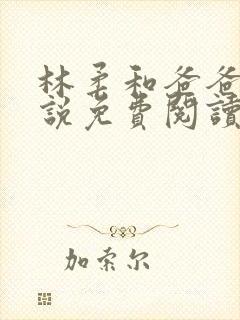 林柔和爸爸
說免費閱讀
加索尔